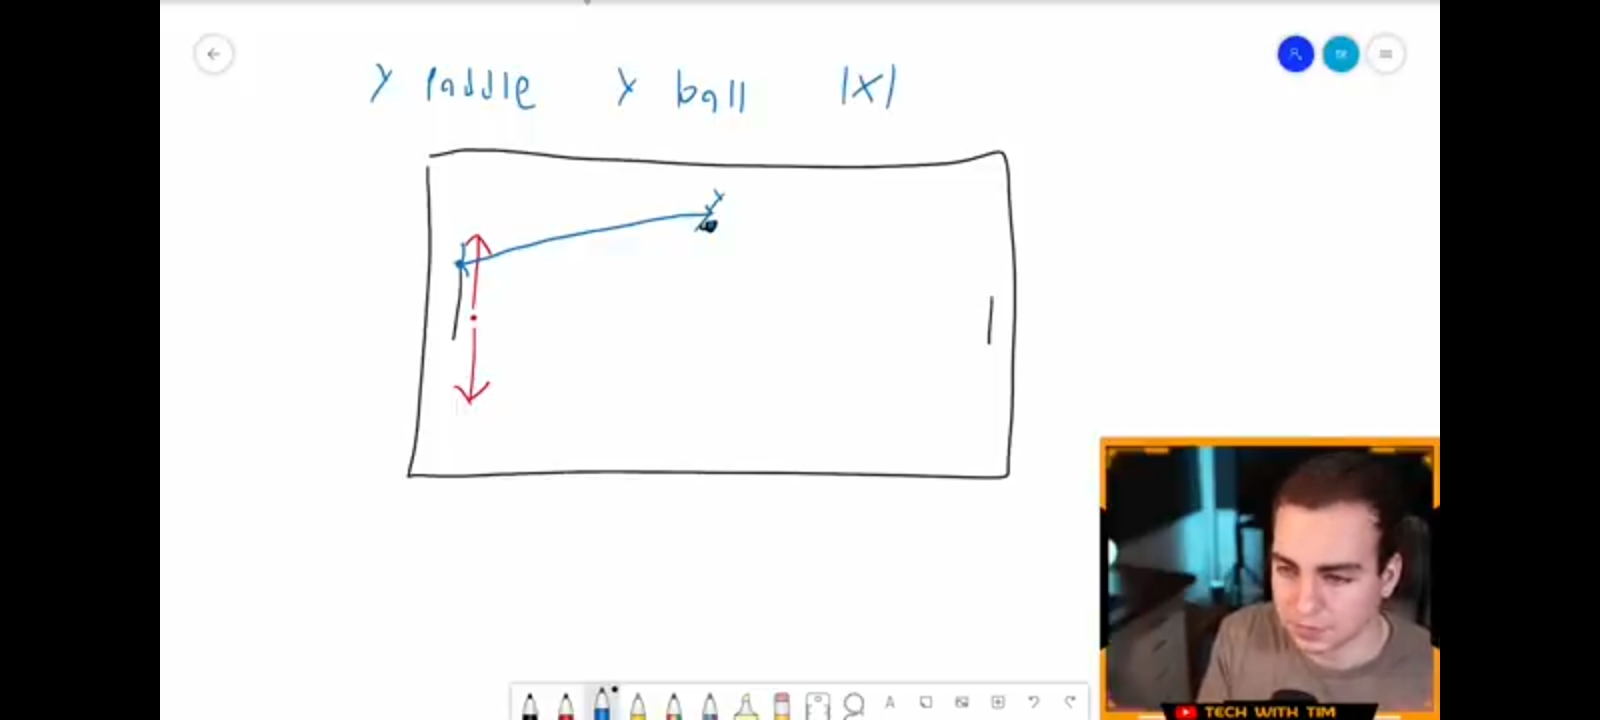 Y Paddle Y ball |X|
Y
A
TECH WITH TIM